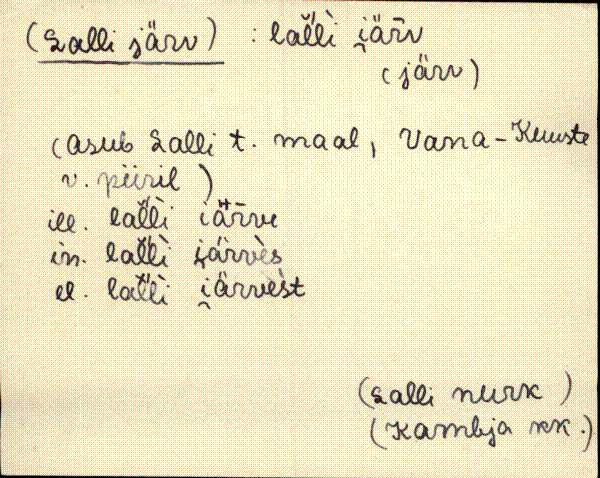 (Lalli järv) : lal̆l̀i i̯är̄v
(järv)
(asub Lalli t. maal, Vana-Kuuste
v. piiril)
ill. lal̆l̀i i̯är̄ve
in. lal̆l̀i i̯ärvès
el. lal̆l̀i i̯ärvèst
(Lalli nurk)
(Kambja kk.)